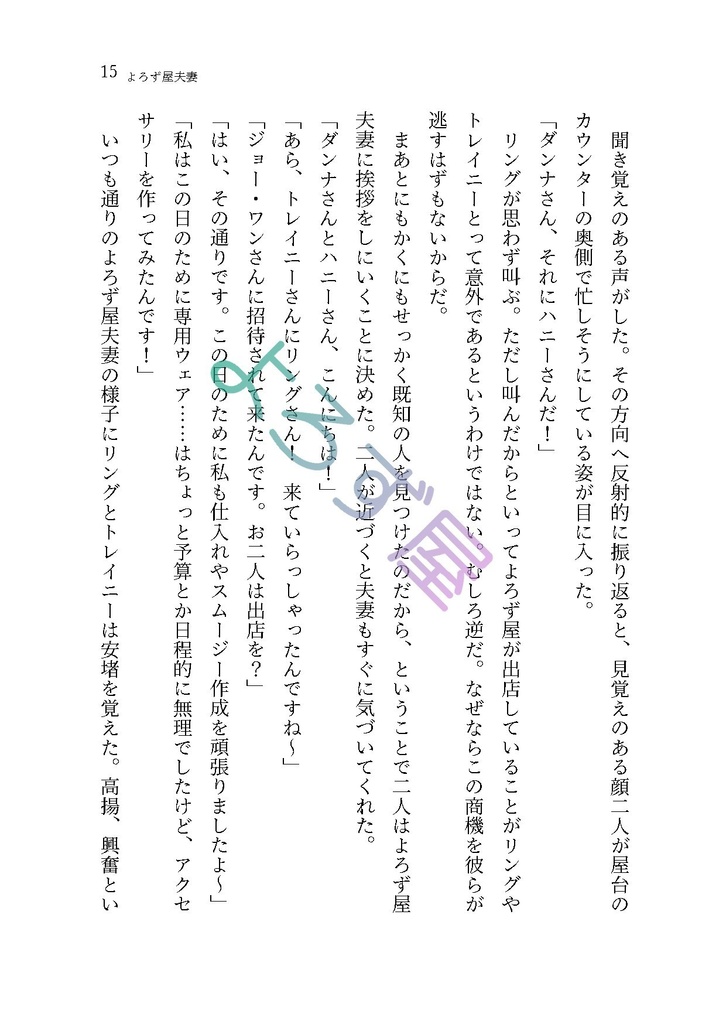 15 よろず屋夫妻
　聞き覚えのある声がした。その方向へ反射的に振り返ると、見覚えのある顔二人が屋台の
カウンターの奥側で忙しそうにしている姿が目に入った。
「ダンナさん、それにハニーさんだ！」
　リングが思わず叫ぶ。ただし叫んだからといってよろず屋が出店していることがリングや
トレイニーとって意外であるというわけではない。むしろ逆だ。なぜならこの商機を彼らが
逃すはずもないからだ。
　まあとにもかくにもせっかく既知の人を見つけたのだから、ということで二人はよろず屋
夫妻に挨拶をしにいくことに決めた。二人が近づくと夫妻もすぐに気づいてくれた。
「ダンナさんとハニーさん、こんにちは！」
「あら、トレイニーさんにリングさん！　来ていらっしゃったんですね～」
「ジョー・ワンさんに招待されて来たんです。お二人は出店を？」
「はい、その通りです。この日のために私も仕入れやスムージー作成を頑張りましたよ～」
「私はこの日のために専用ウェア……はちょっと予算とか日程的に無理でしたけど、アクセ
サリーを作ってみたんです！」
　いつも通りのよろず屋夫妻の様子にリングとトレイニーは安堵を覚えた。高揚、興奮とい
よろず屋